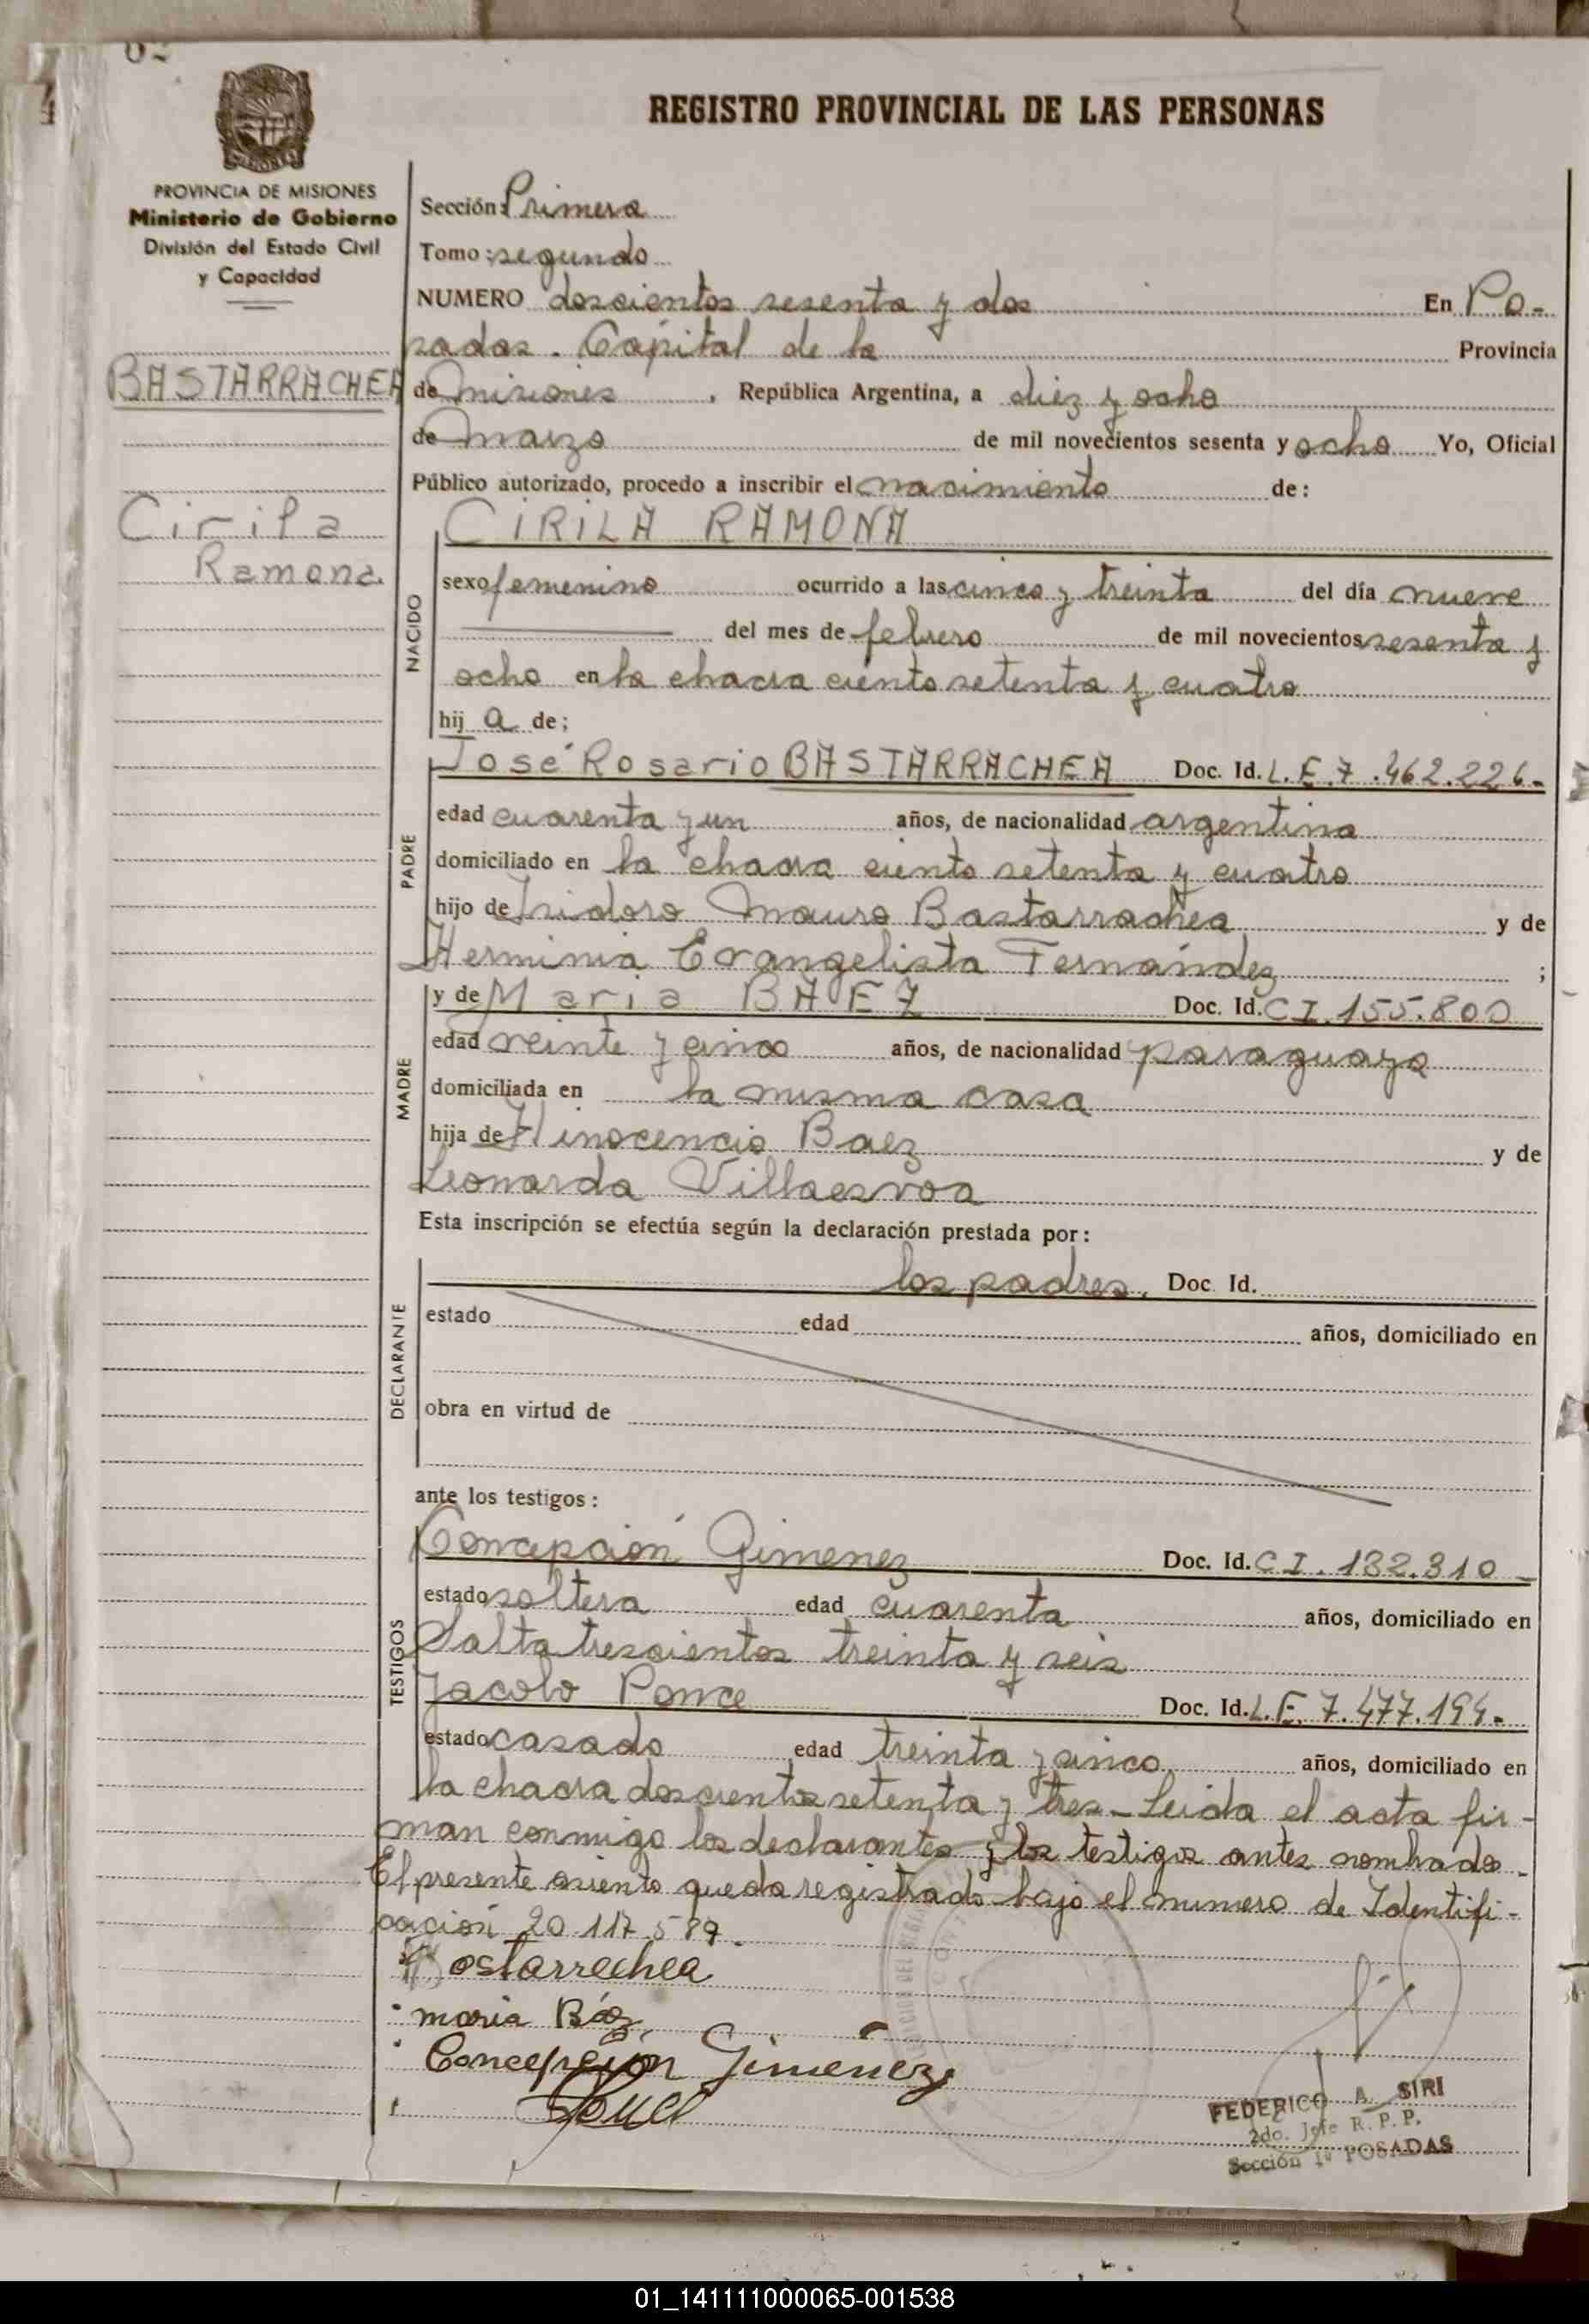 REGISTRO PROVINCIAL DE LAS PERSONAS
PROVINCIA DE MISIONES
Ministerio de Gobierno
División del Estado Civil
y Capacidad
BASTARRACHEA
Cirila
Ramona
Sección: Primera
Tomo: segundo
NUMERO doscientos sesenta y dos En Po-
sadas. Capital de la Provincia
de misiones, República Argentina, a diez y ocho
de marzo de mil novecientos sesenta y ocho Yo, Oficial
Público autorizado, procedo a inscribir el nacimiento de:
NACIDO
CIRILA RAMONA
sexo femenino ocurrido a las cinco y treinta del día nueve
del mes de febrero de mil novecientos sesenta y
ocho en la chacra ciento setenta y cuatro
hij a de;
PADRE
José Rosario BASTARRACHEA Doc. Id. L.E. 7.462.226.-
edad cuarenta y un años, de nacionalidad argentina
domiciliado en la chacra ciento setenta y cuatro
hijo de Isidoro Mauro Bastarrachea y de
Herminia Evangelista Fernández ;
MADRE
y de Maria BAEZ Doc. Id. C I. 155.800
edad veinte y cinco años, de nacionalidad paraguaya
domiciliada en la misma casa
hija de Hinocencio Baez y de
Leonarda Villaesvoa
Esta inscripción se efectúa según la declaración prestada por:
DECLARANTE
los padres. Doc. Id.
estado edad años, domiciliado en
obra en virtud de
ante los testigos:
TESTIGOS
Concepción Gimenez Doc. Id. C I. 182.310 -
estado soltera edad cuarenta años, domiciliado en
Salta trescientos treinta y seis
Jacobo Ponce Doc. Id. L.E. 7.477.194.-
estado casado edad treinta y cinco años, domiciliado en
la chacra doscientos setenta y tres - Leida el acta fir-
man conmigo los declarantes y los testigos antes nombrados.
El presente asiento queda registrado bajo el numero de Identifi-
cación 20.117.589.
Bostarrechea
maria Báez
Concepción Gimenez
FEDERICO A. SIRI
2do. Jefe R. P. P.
Sección 1ª POSADAS
01_141111000065-001538